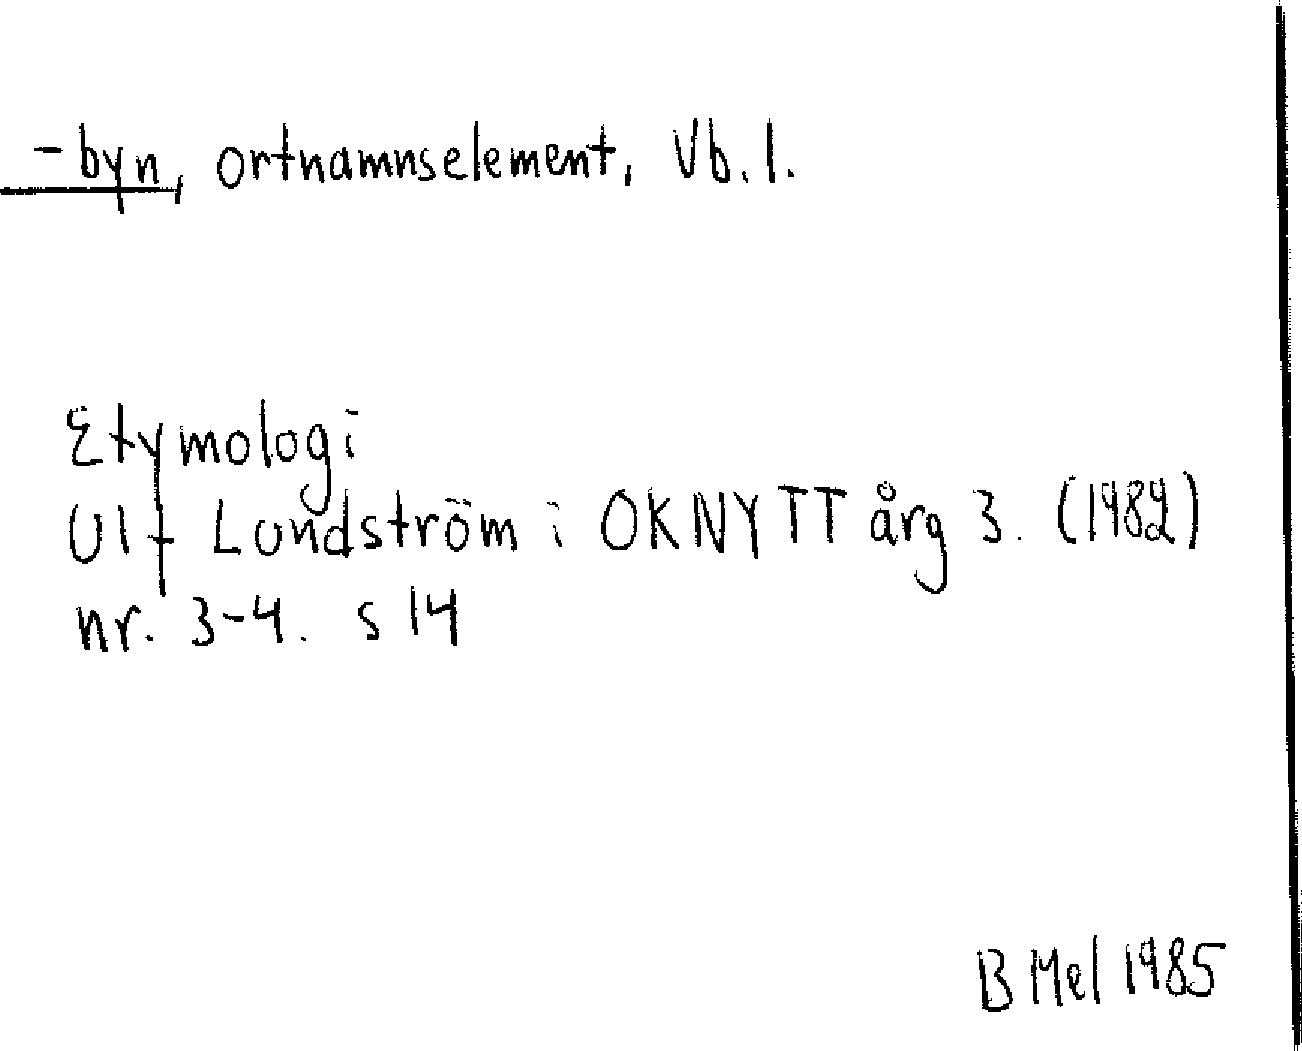 -byn, ortnamnselement, Vb. l.
Etymologi
Ulf Lundström i OKNYTT årg 3. (1982)
nr. 3-4. s 14
B Mel 1985